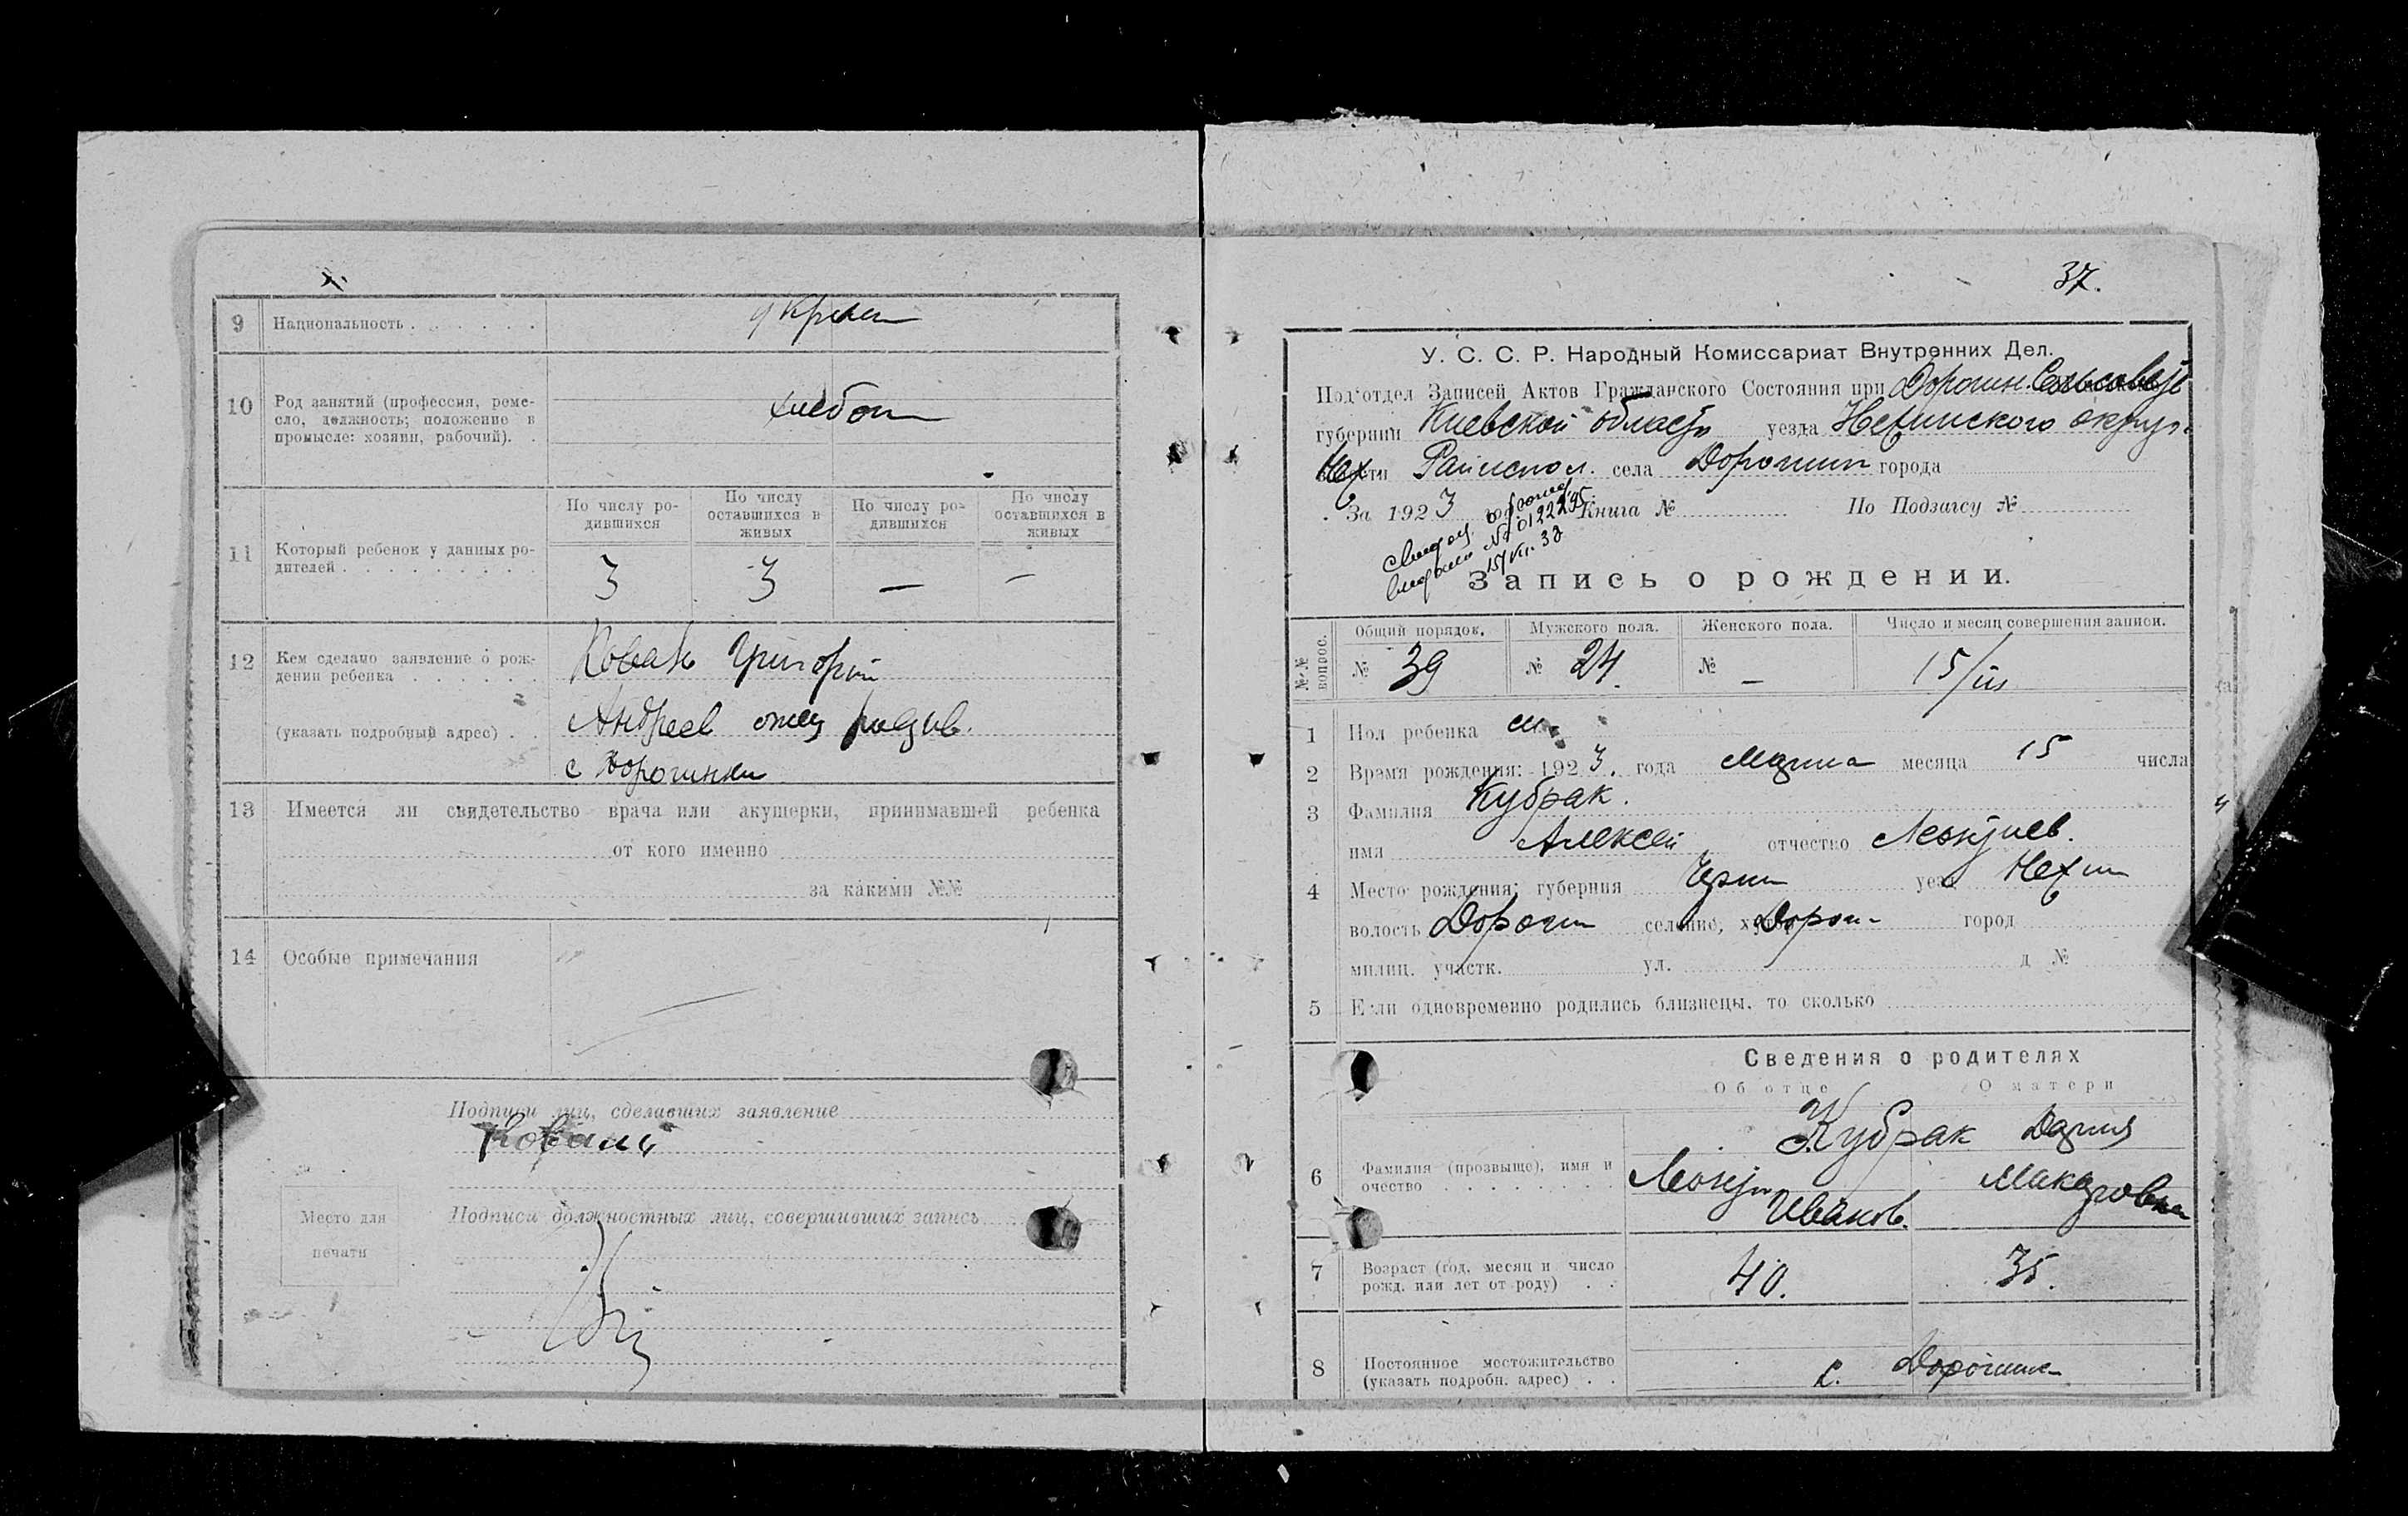 9 Национальность . . . . . . Украин
10 Род занятий (профессия, реме-
сло, должность; положение в
промысле: хозяин, рабочий). . хлебоп
По числу ро-
дившихся
По числу
оставшихся в
живых
По числу ро-
дившихся
По числу
оставшихся в
живых
11 Который ребенок у данных ро-
дителей . . . . . . . . . 3 3 — —
12 Кем сделано заявление о рож-
дении ребенка . . . . . . Коваль Григорий
(указать подробный адрес) . . Андреев отец
с Дорогинки
13 Имеется ли свидетельство врача или акушерки, принимавшей ребенка
от кого именно
за какими №№
14 Особые примечания
Подписи лиц, сделавших заявление
Коваль
Место для
печати
Подписи должностных лиц, совершивших запись
37.
У. С. С. Р. Народный Комиссариат Внутренних Дел.
Под'отдел Записей Актов Гражданского Состояния при Дорогин. Сельсовете
губернии Киевской области уезда Нежинского округ.
Райиспол. села Дорогин города
За 1923 Книга № По Подзагсу №
№ 012225
15/VII. 33
Запись о рождении.
№№ вопрос.
Общий порядок. Мужского пола. Женского пола. Число и месяц совершения записи.
№ 39 № 24 № — 15/III
1 Пол ребенка м.
2 Время рождения: 1923. года Марта месяца 15 числа
3 Фамилия Кубрак.
имя Алексей отчество Леонтиев.
4 Место рождения: губерния Черн уезд Нежин
волость Дорогин селение, хутор Дорог- город
милиц. участк. ул. д №
5 Если одновременно родились близнецы, то сколько
Сведения о родителях
Об отце О матери
6 Фамилия (прозвище), имя и
очество . . . . . . .
Кубрак Дария
Леонти Макаровна
Иванов.
7 Возраст (год, месяц и число
рожд. или лет от роду) . . 40. 35.
8 Постоянное местожительство
(указать подробн. адрес) . . с. Дорогинк